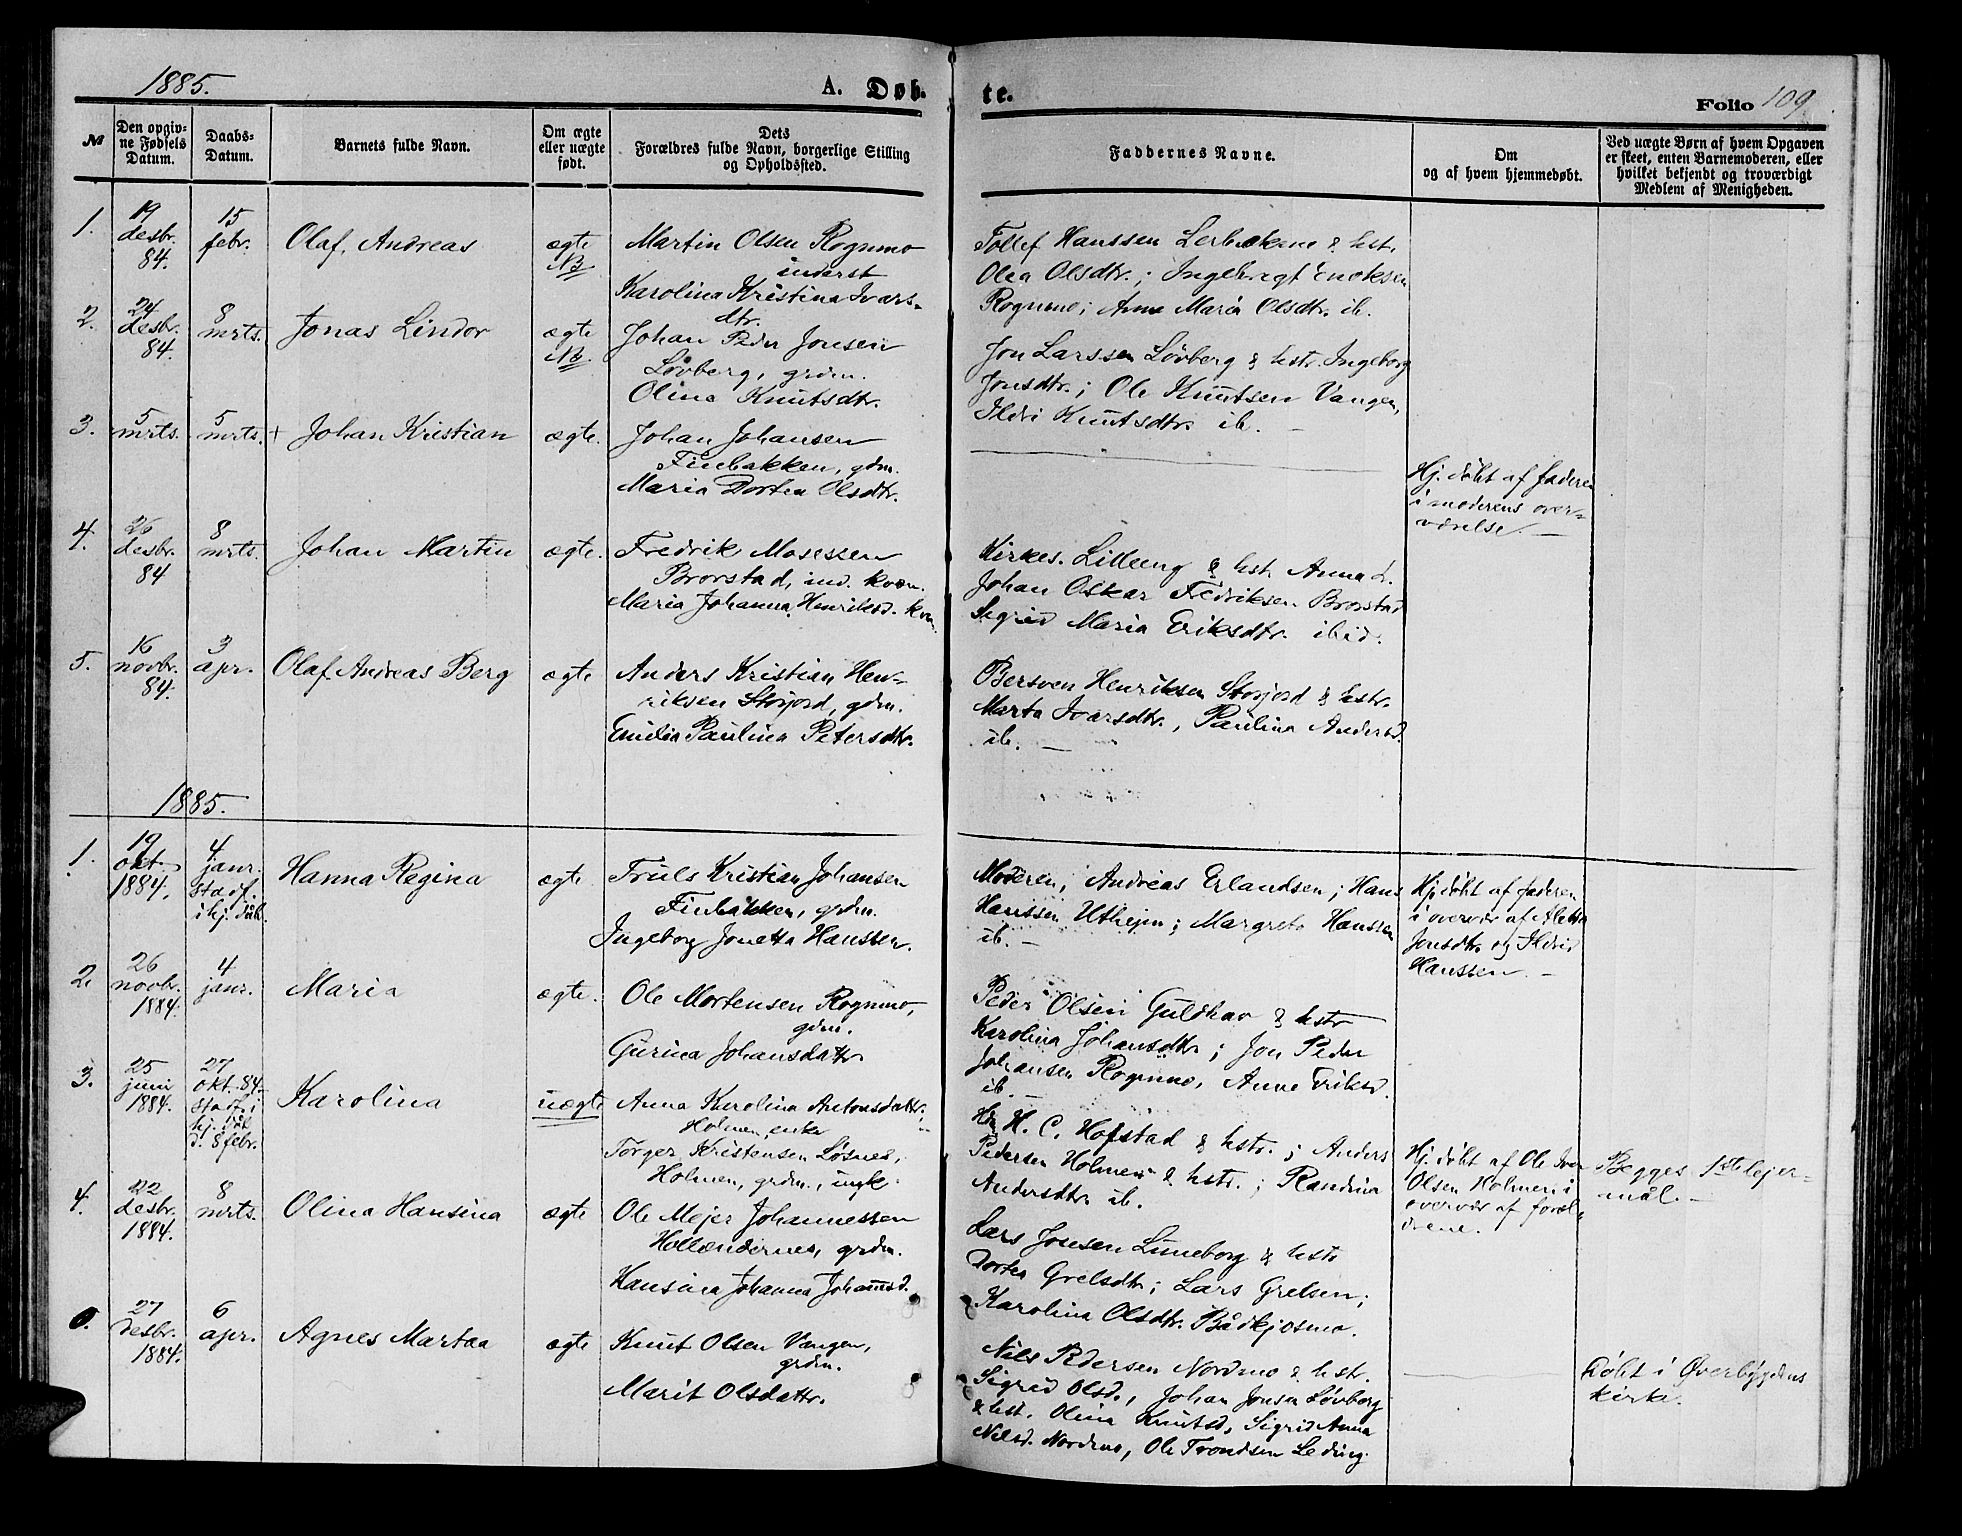 1885.
A. Døb-
te.
Folio 109.
№
Den opgiv-
ne Fødsels
Datum.
Daabs-
Datum.
Barnets fulde Navn.
Om ægte
eller uægte
født.
Dets
Forældres fulde Navn, borgerlige Stilling
og Opholdssted.
Faddernes Navne.
Om
og af hvem hjemmedøbt.
Ved uægte Børn af hvem Opgaven
er skeet, enten Barnemoderen, eller
hvilket bekjendt og troværdigt
Medlem af Menigheden.
1.
19
desbr.
84.
15
febr.
Olaf Andreas
ægte
NB
Martin Olsen Rognmo
inderst
Karolina Kristina Ivars-
dtr.
Tollef Hanssen Lerbekmo & hst.
Olea Olsdtr.; Ingebrigt Enoksen
Rognmo; Anne Maria Olsdtr. ib.
2.
24
desbr.
84.
8
mrts.
Jonas Lindor
ægte
NB.
Johan Peder Jonsen
Løvberg, grdm.
Olina Knutsdtr.
Jon Larssen Løvberg & hstr. Ingeborg
Jonsdtr.; Ole Knutsen Vangen,
Ildri Knutsdtr. ib. —
3.
5
mrts.
5
mrts.
+ Johan Kristian
ægte.
Johan Johansen
Finbakken, gdm.
Maria Dortea Olsdtr.
Hj. døbt af faderen
i moderens over-
værelse. —
4.
26
desbr.
84
8
mrts.
Johan Martin
ægte.
Fredrik Mosessen
Brorstad, ind. kvæn.
Maria Johanna Henriksd. kvæn.
Kirkes. Lilleeng & hst. Anna L.
Johan Oskar Fedriksen Brorstad
Sigrid Maria Eriksdtr. ibid.
5.
16
novbr.
84.
3
apr.
Olaf Andreas Berg
ægte
Anders Kristian Hen-
riksen Storjord, gdm.
Emilia Paulina Petersdtr.
Bersven Henriksen Storjord & hstr.
Marta Ivarsdtr., Paulina Andersd.
ib. —
1885.
1.
19
okt.
1884.
4
janr.
stadf.
i hj. dåb.
Hanna Regina
ægte
Truls Kristian Johansen
Finbakken, grdm.
Ingeborg Jonetta Hanssen.
Moderen; Andreas Erlandsen; Hans
Hanssen Uthejm; Margrete Hanssen
ib. —
Hj. døbt af faderen
i overvær af Aletta
Jonsdtr. og Ildrid
Hanssen. —
2.
26
novbr.
1884.
4
janr.
Maria
ægte.
Ole Mortensen Rognmo,
gdm.
Gurina Johansdattr.
Peder Olsen Guldhav & hstr
Karolina Johansdtr.; Jon Peder
Johansen Rognmo, Anne Eriksd.
ib. —
3.
25
juni
1884.
27
okt. 84.
stadf. i
hj. dåb
d. 8 febr.
Karolina
uægte
Anna Karolina Antonsdattr.
Holmen, enke
Torger Kristensen Løsnes,
Holmen, grdm., ungk.
Hr. H. C. Hofstad & hstr.; Anders
Pedersen Holmen & hstr.; Randina
Andersdtr. ib.
Hj. døbt af Ole Iver
Olsen Holmen i
overvær af foræl-
drene.
Begges 1ste lejer-
mål. —
4.
22
desbr.
1884.
8
mrts.
Olina Hansina
ægte
Ole Mejer Johannessen
Hollændernes, grdm.
Hansina Johanna Johannsd.
Lars Jonsen Luneborg & hstr
Dortea Grelsdtr; Lars Grelsen;
Karolina Olsdtr. Bådkjosmo.
0.
27
desbr.
1884.
6
apr.
Agnes Martaa
ægte
Knut Olsen Vangen,
grdm.
Marit Olsdattr.
Nils Pedersen Nordmo & hstr.
Sigrid Olsd., Johan Jonsen Løvberg
& hst. Olina Knutsd, Sigrid Anna
Nilsd. Nordmo, Ole Trondsen Leding.
Døbt i Øverbygdens
kirke.